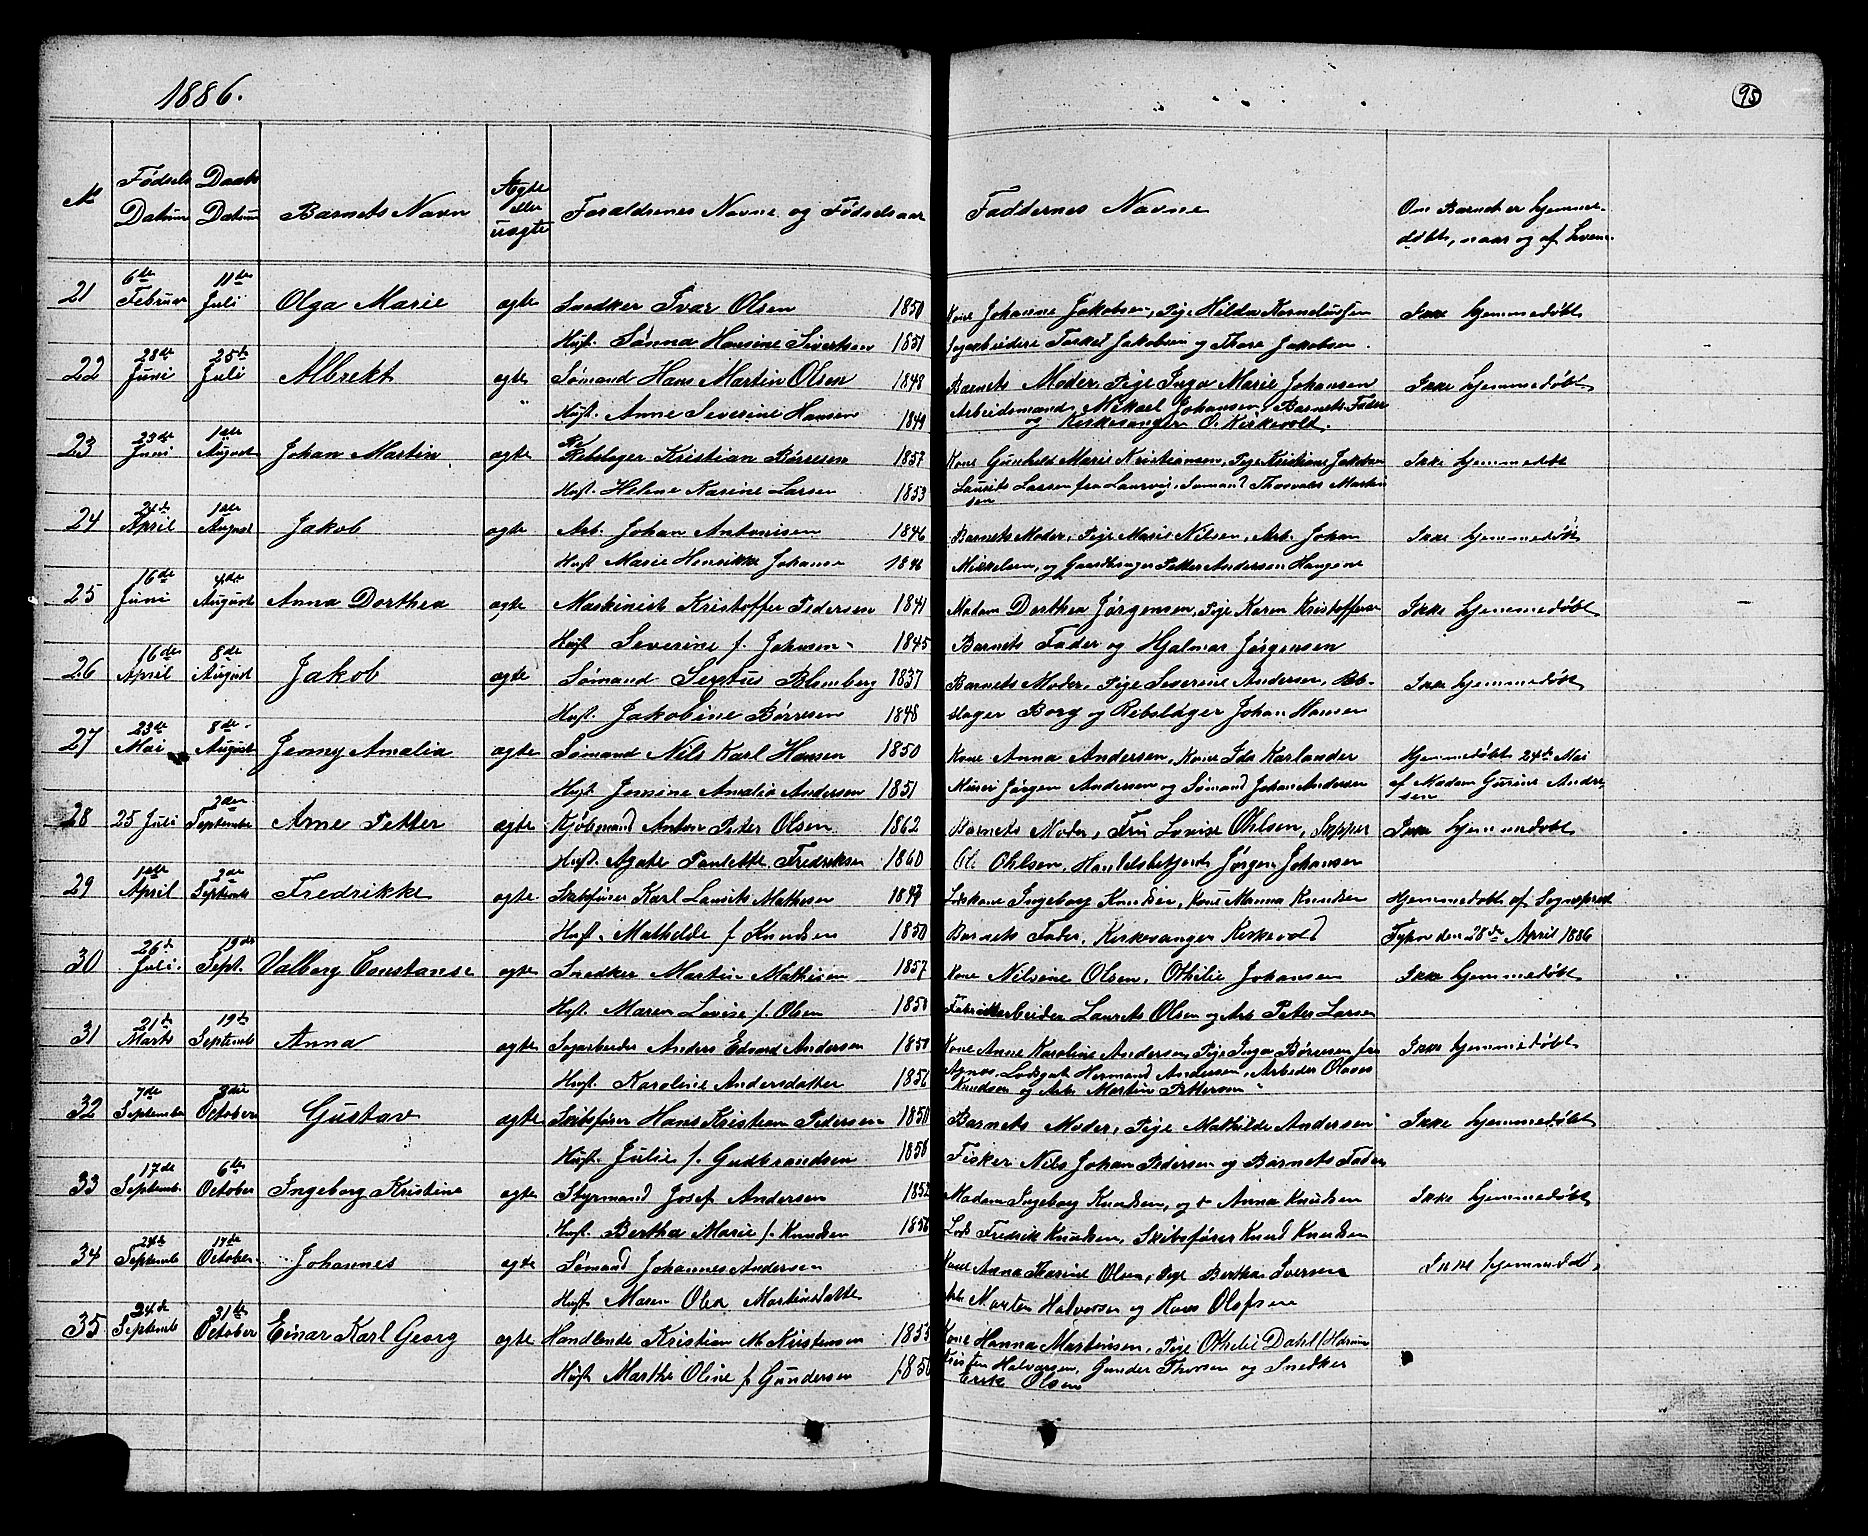 1886.
95
№ Fødsels Datum Daabs Datum Barnets Navn Ægte eller uægte Forældrenes Navne og Fødselsaar Faddernes Navne Om Barnet er hjemmedøbt, naar og af hvem
21 6te Februar 11te Juli Olga Marie ægte Snedker Ivar Olsen 1850 Kone Johanne Jakobsen, Pige Hilda Kornelussen Ikke hjemmedøbt
Hust. Hansine Sivertsen 1851 Jakobsen og Thore Jakobsen.
22 28de Juni 25de Juli Albrekt ægte Sømand Hans Martin Olsen 1848 Barnets Moder, Pige Inga Marie Johansen Ikke hjemmedøbt
Hust. Anne Severine Hansen 1849 Arbeidsmand Mikael Johansen, Barnets Fader
og Kirkesanger O. Kirkevold.
23 23de Juni 1ste August Johan Martin ægte Rebslager Kristian Børresen Kone Gunhild Marie Kristiansen, Pige Kristiane Jakobsen Ikke hjemmedøbt
Hust. Helene Karine Larsen 1853 Laurits Larsen fra Laurvig, Sømand Thorvald Martin
sen
24 April 1ste August Jakob ægte Arb. Johan Antonisen 1846 Barnets Moder, Pige Marie Nilsen, Arb. Johan Ikke hjemmedøbt
Hust Marie Henrikke Johanse 1846 Mikkelsen, og Gaardbruger Petter Andersen Haugene
25 16de Juni 4de August Anna Dorthea ægte Maskinist Kristoffer Pedersen 1841 Madam Dorthea Jørgensen, Pige Karen Kristoffersen Ikke hjemmedøbt
Hust Severine f. Johnsen 1845 Barnets Fader og Hjalmar Jørgensen
26 16de April 8de August Jakob ægte Sømand Sextus Blomberg 1837 Barnets Moder, Pige Severine Andersen, Reb- Ikke hjemmedøbt
Hust. Jakobine Børresen 1848 slager Borg og Rebslager Johan Hansen
27 23de Mai 8de August Jenny Amalia ægte Sømand Nils Karl Hansen 1850 Kone Anna Andersen, Kone Ida Karlander Hjemmedøbt 24de Mai
Hust. Jensine Amalia Andersen 1851 Murer Jørgen Andersen og Sømand Johan Andersen af Madam Gurine Ander-
sen
28 25 Juli 2den September Arne Petter ægte Kjøbmand Anton Peter Olsen 1862 Barnets Moder, Frk Lovise Ohlsen, Skipper Ikke hjemmedøbt
Hust. Agate Paulette Fredriksen 1860 Ol. Ohlsen, Handelsbetjent Jørgen Johansen
29 1ste April 2de Septemb Fredrikke ægte Skibsfører Karl Laurits Mathesen Lodskone Ingeborg Knudsen, Kone Manna Knudsen Hjemmedøbt af Sogneprest
Hust. Mathilde f Knudsen 1850 Barnets Fader, Kirkesanger Kirkevold den 28de April 1886
30 26de Juli 19de Sept. Valborg Constanse ægte Snedker Martin Mathisen 1857 Kone Nilsine Olsen, Othilie Johansen Ikke hjemmedøbt
Hust. Maren Lovise f. Olsen 1850 Fabrikkarbeider Laurits Olsen og Arb Peter Larsen
31 21de Marts 19de Septemb Anna ægte Sagarbeider Anders Edvard Andersen 1850 Kone Anne Karoline Andersen, Pige Inga Børresen fra Ikke hjemmedøbt
Hust. Karoline Andersdatter 1856 Agnes, Lodsgut Hermand Andersen, Arbeder Olaves
Knudsen og Arb Martin Pettersen
32 7de September 3die October Gustav ægte Skibsfører Hans Kristian Pedersen 1850 Barnets Moder, Pige Mathilde Andersen Ikke hjemmedøbt
Hust. Julie f. Gudbrandsen 1858 Fisker Nils Johan Pedersen og Barnets Fader
33 17de Septemb. 6te October Ingeborg Kristine ægte Styrmand Josef Andersen 1852 Madam Ingeborg Knudsen, og Anna Knudsen Ikke hjemmedøbt
Hust. Bertha Marie f. Knudsen 1858 Lods Fredrik Knudsen, Skibsfører Knud Knudsen
34 24de Septemb 17de October Johannes ægte Sømand Johannes Andersen Kone Anna Thorine Olsen, Pige Berthe Iversen Ikke hjemmedøbt
Hust Maren Olea Martinsdatte Arb. Morten Halvorsen og Hans Olafsen
35 24de Septemb 31te October Einar Karl Georg ægte Handlende Kristian M. Kristensen 1853 Kone Hanna Martinsen, Pige Othilie Dahl
Hust Marthe Oline f Gundersen 1850 Kristen Halvorsen, Gunder Thorsen og Snedker
Erik Olsen